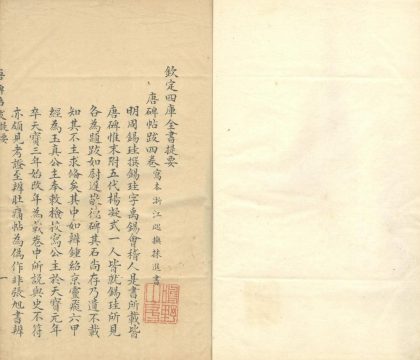 欽定四庫全書提要
唐碑帖跋四卷 寫本 浙江巡撫採進書
明周錫珪撰錫珪字禹錫會稽人是書所載皆
唐碑惟末附五代楊凝式一人皆就錫珪所見
各為題跋如尉遲敬德碑其石尚存乃遺不載
知其不主求備矣其中如辨鍾紹京靈飛六甲
經為玉真公主奉敕檢校寫公主於天寶元年
卒天寶三年始改年為載卷中所說與史不符
亦頗見考證至辨肚痛帖為偽作非張旭書辨
唐碑帖跋提要
一